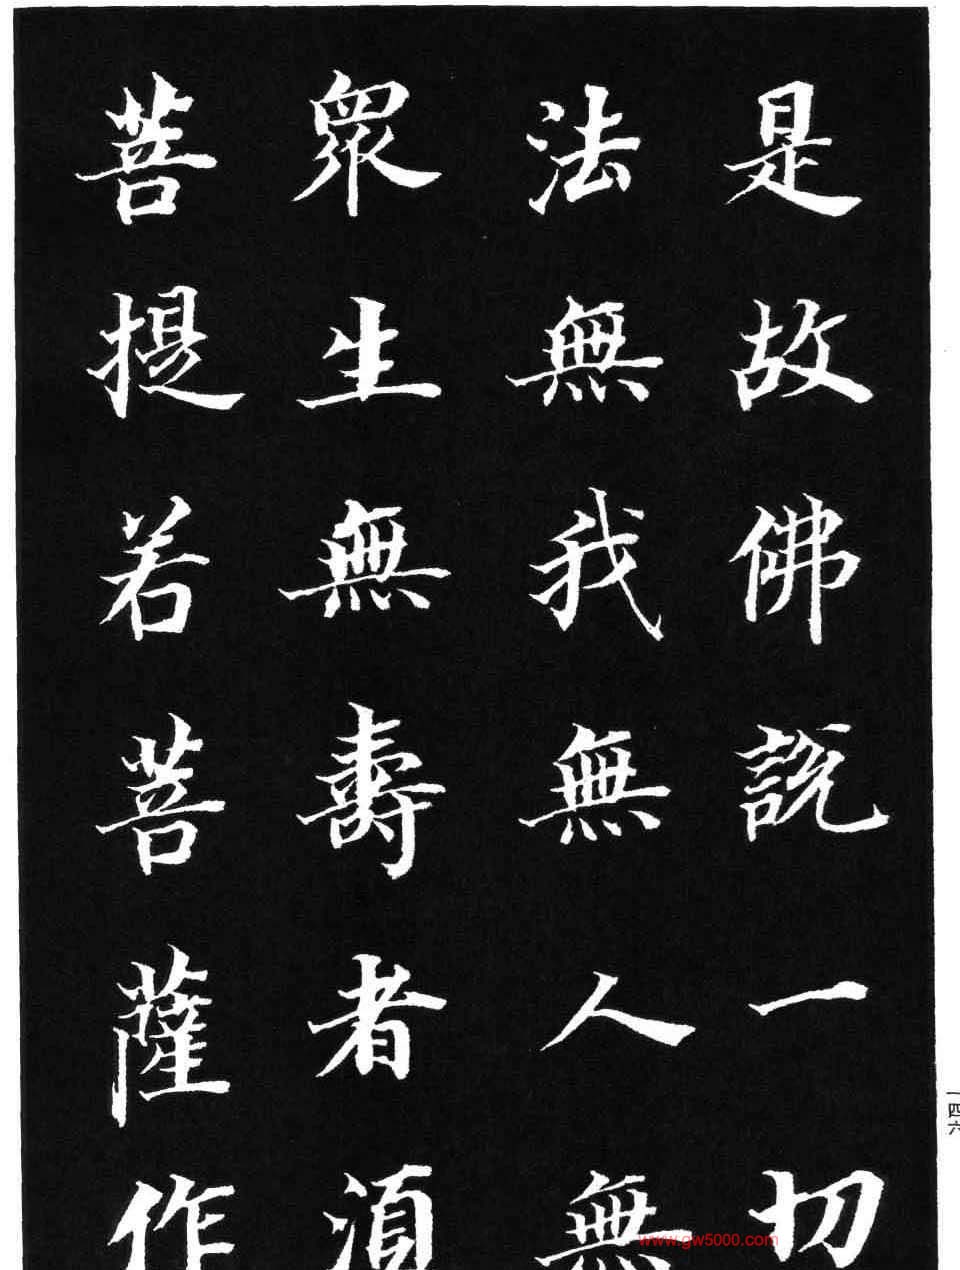 是故佛說一切
法無我無人無
眾生無壽者須
菩提若菩薩作
一四六
www.gw5000.com